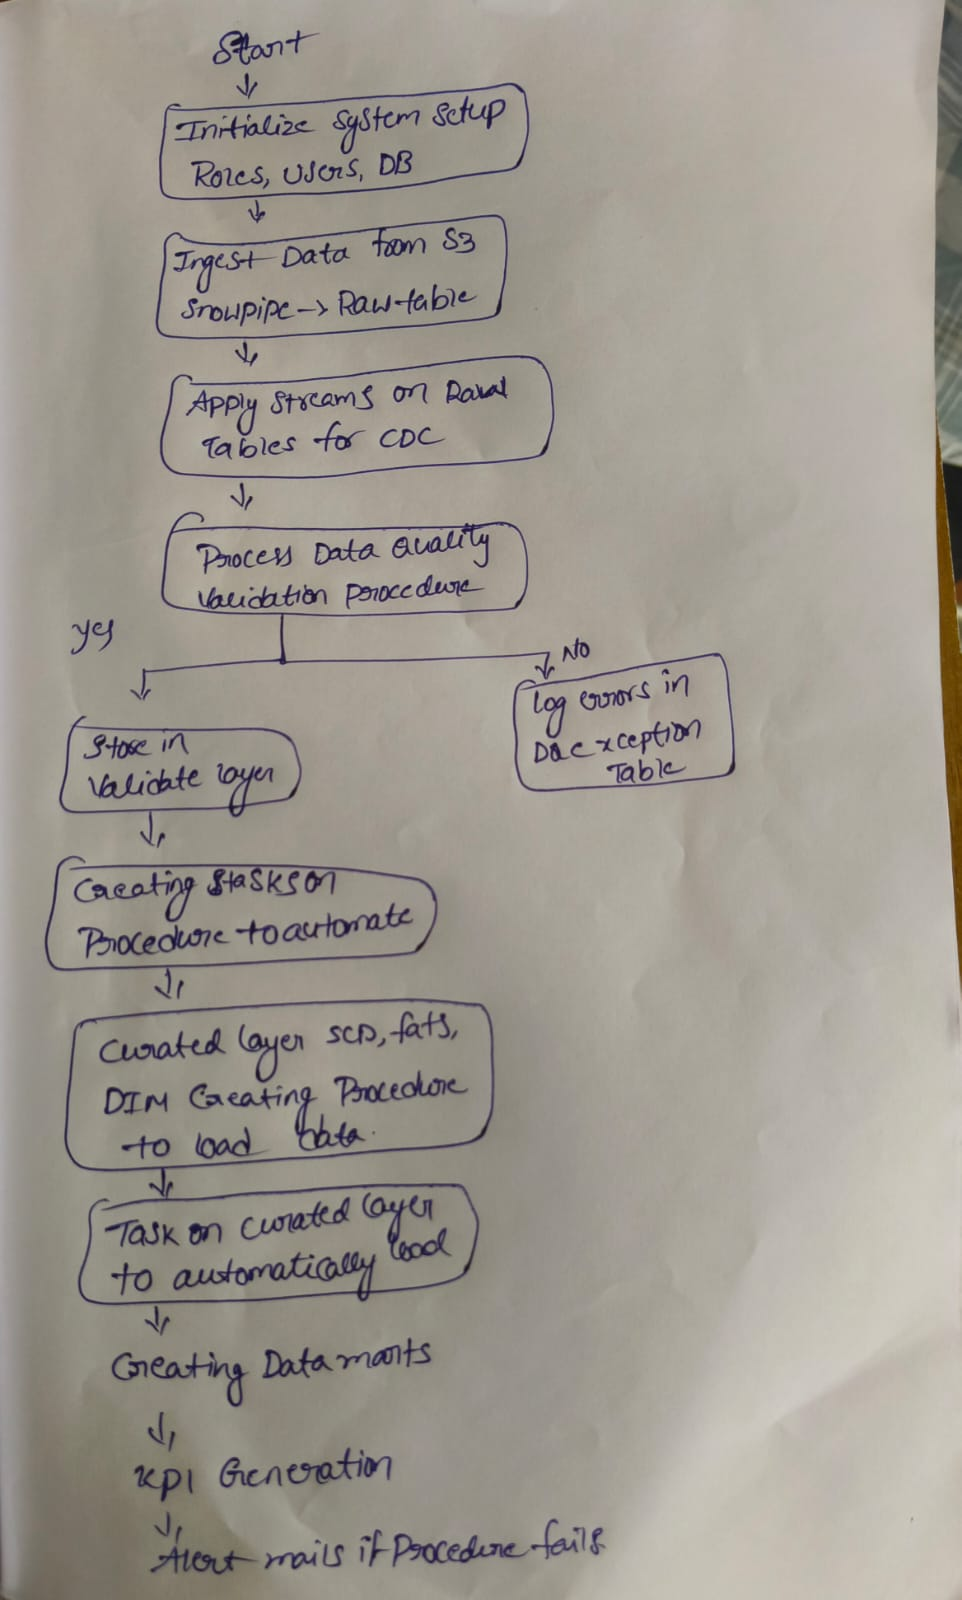 Start
Initialize system setup
Roles, users, DB
Ingest Data from S3
Snowpipe -> Raw table
Apply streams on
Tables for CDC
Process Data Quality
Validation procedure
yes
No
Log errors in
Table
Store in
Validate layer
Creating on
Procedure to automate
Curated layer SCD, fats,
DIM Creating Procedure
to load data.
Task on curated layer
to automatically load
Creating Data marts
KPI Generation
Alert mails if Procedure fails